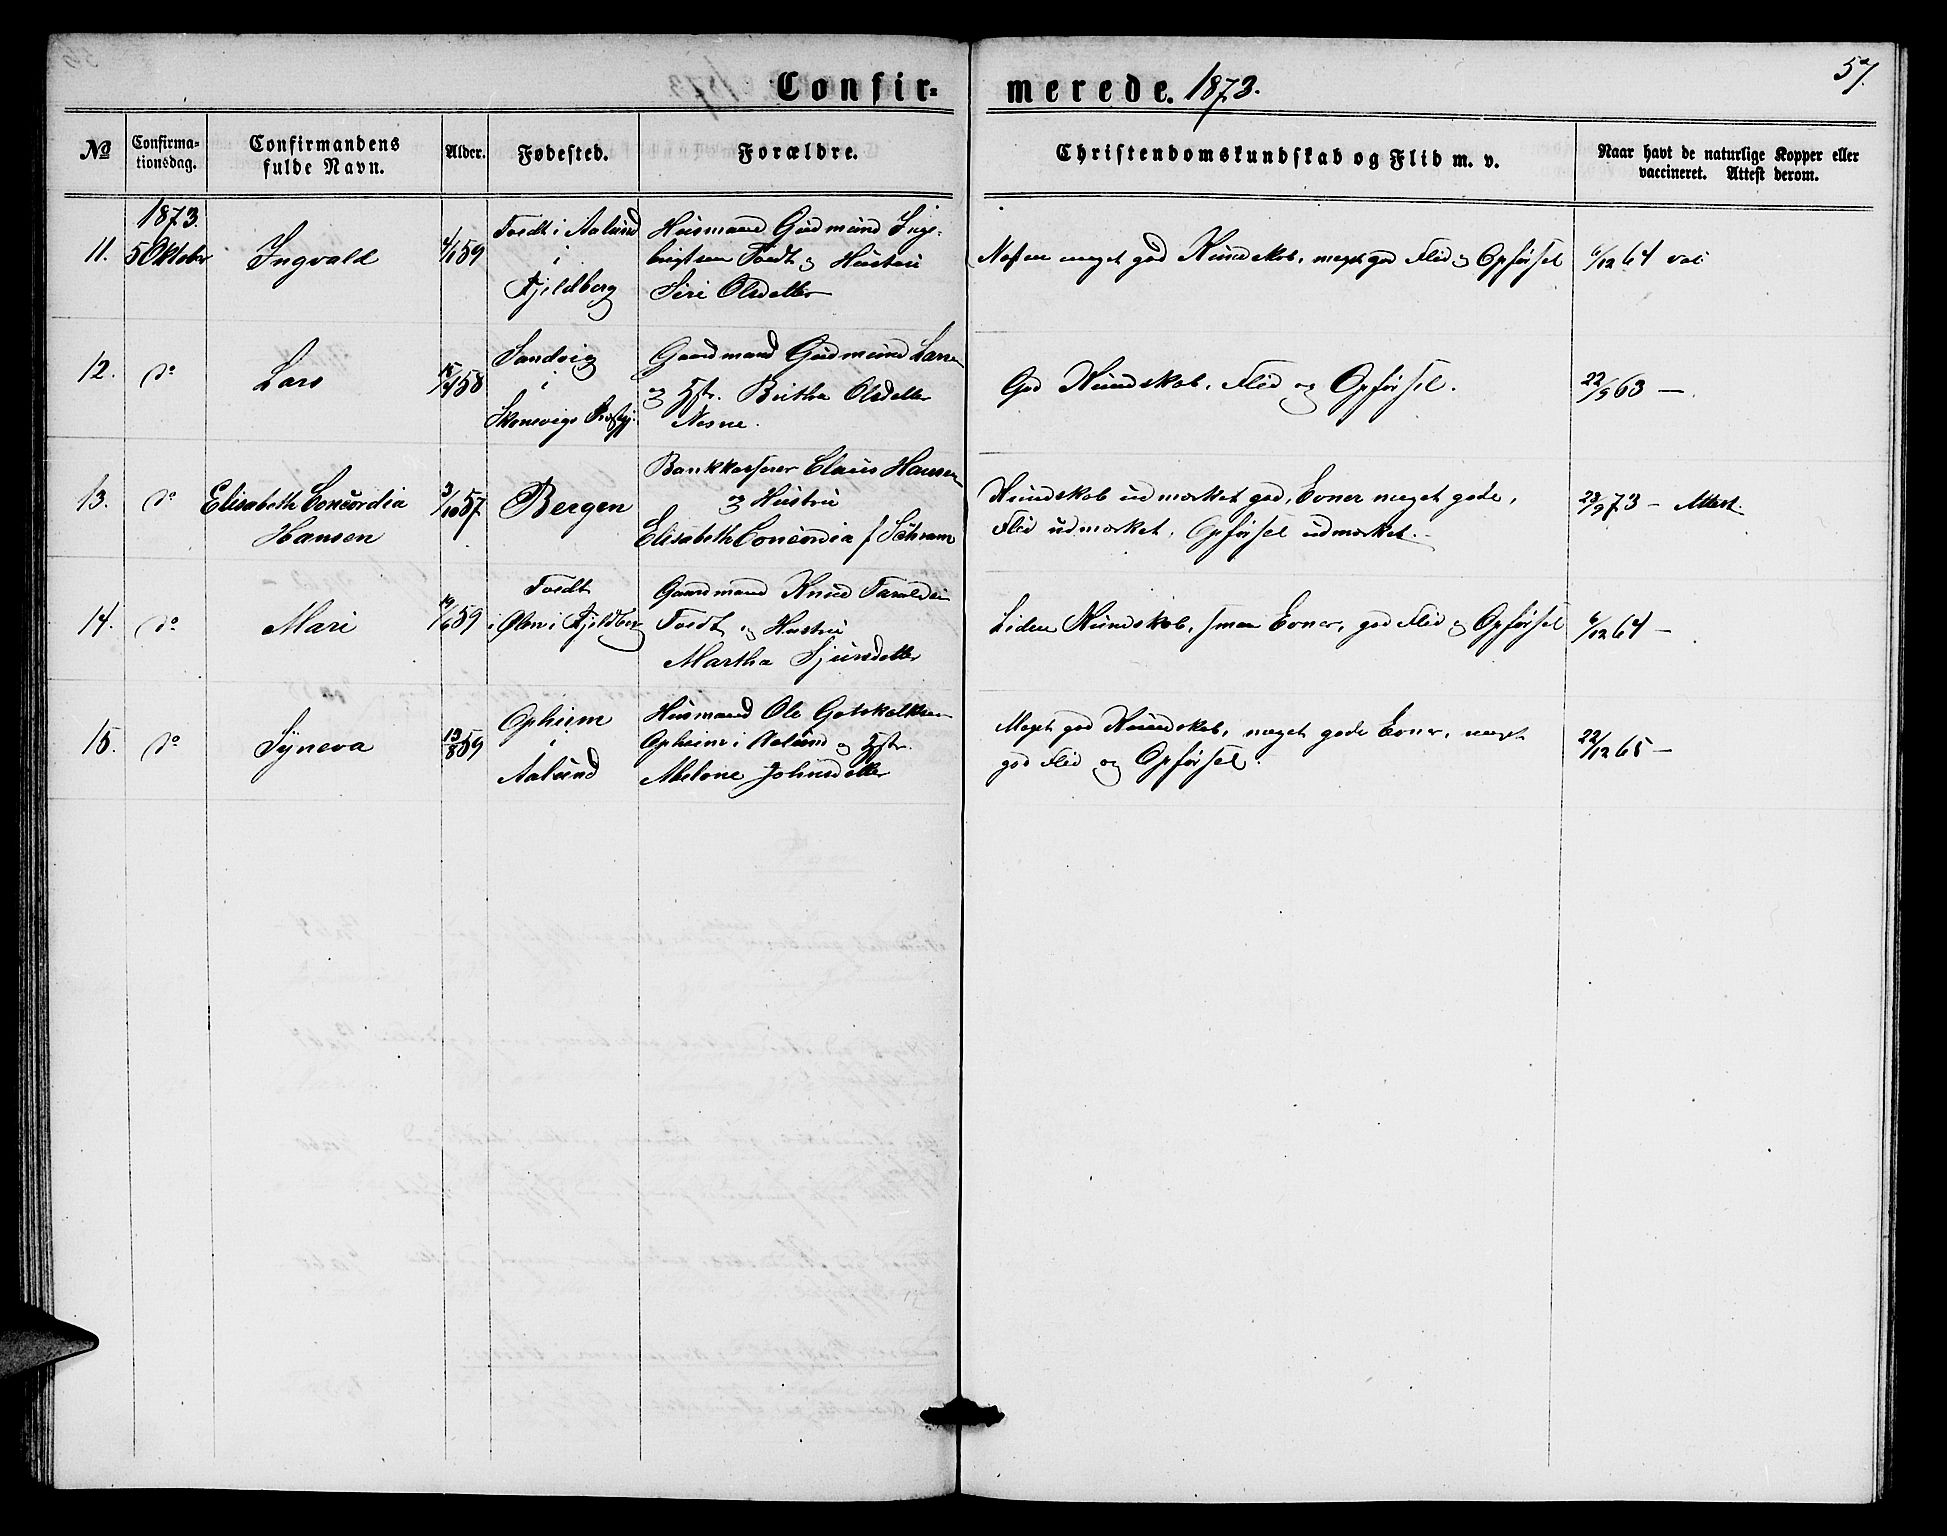 Confirmerede. 1873.
57.
No
Confirmationsdag.
Confirmandens fulde Navn.
Alder.
Fødested.
Forældre.
Christendomskundskab og Flid m. v.
Naar havt de naturlige Kopper eller vaccineret. Attest derom.
1873.
11.
5 Oktober
Ingvald
4/1 59
Tvedt i Aalund
i
Fjeldberg
Husmand Gudmund Inge-
brigtsen Tvedt og Hustru
Siri Olsdatter
Næsten meget god Kundskab, meget god Flid og Opførsel
6/12 64 val
12.
do
Lars
15/4 58
Sandvig
i
Skonevigs Præstgj.
Gaardmand Gudmund Larsen
og Hstr. Britha Olsdatter
Nerne.
God Kundskab, Flid og Opførsel.
22/9 63 —
13.
do
Elisabeth Concordia
Hansen
3/10 57
Bergen
Bankkasserer Claus Hansen
og Hustru
Elisabeth Concordia f Schram
Kundskab udmærket god, Evner meget gode,
Flid udmærket, Opførsel udmærket.
23/9 73 — Attest.
14.
do
Mari
19/6 59
Tvedt
i Ølen i Fjeldberg
Gaardmand Knud Taraldsen
Tvedt og Hustru
Martha Sjursdatter
Liden Kundskab, smaa Evner, god Flid og Opførsel
6/12 64 —
15.
do
Syneva
13/8 59
Opheim
i
Aalund
Husmand Ole Gotskalksen
Opheim i Aalund og Hstr.
Abelone Johnsdatter
Meget god Kundskab, meget gode Evner, meget
god Flid og Opførsel.
22/12 65 —